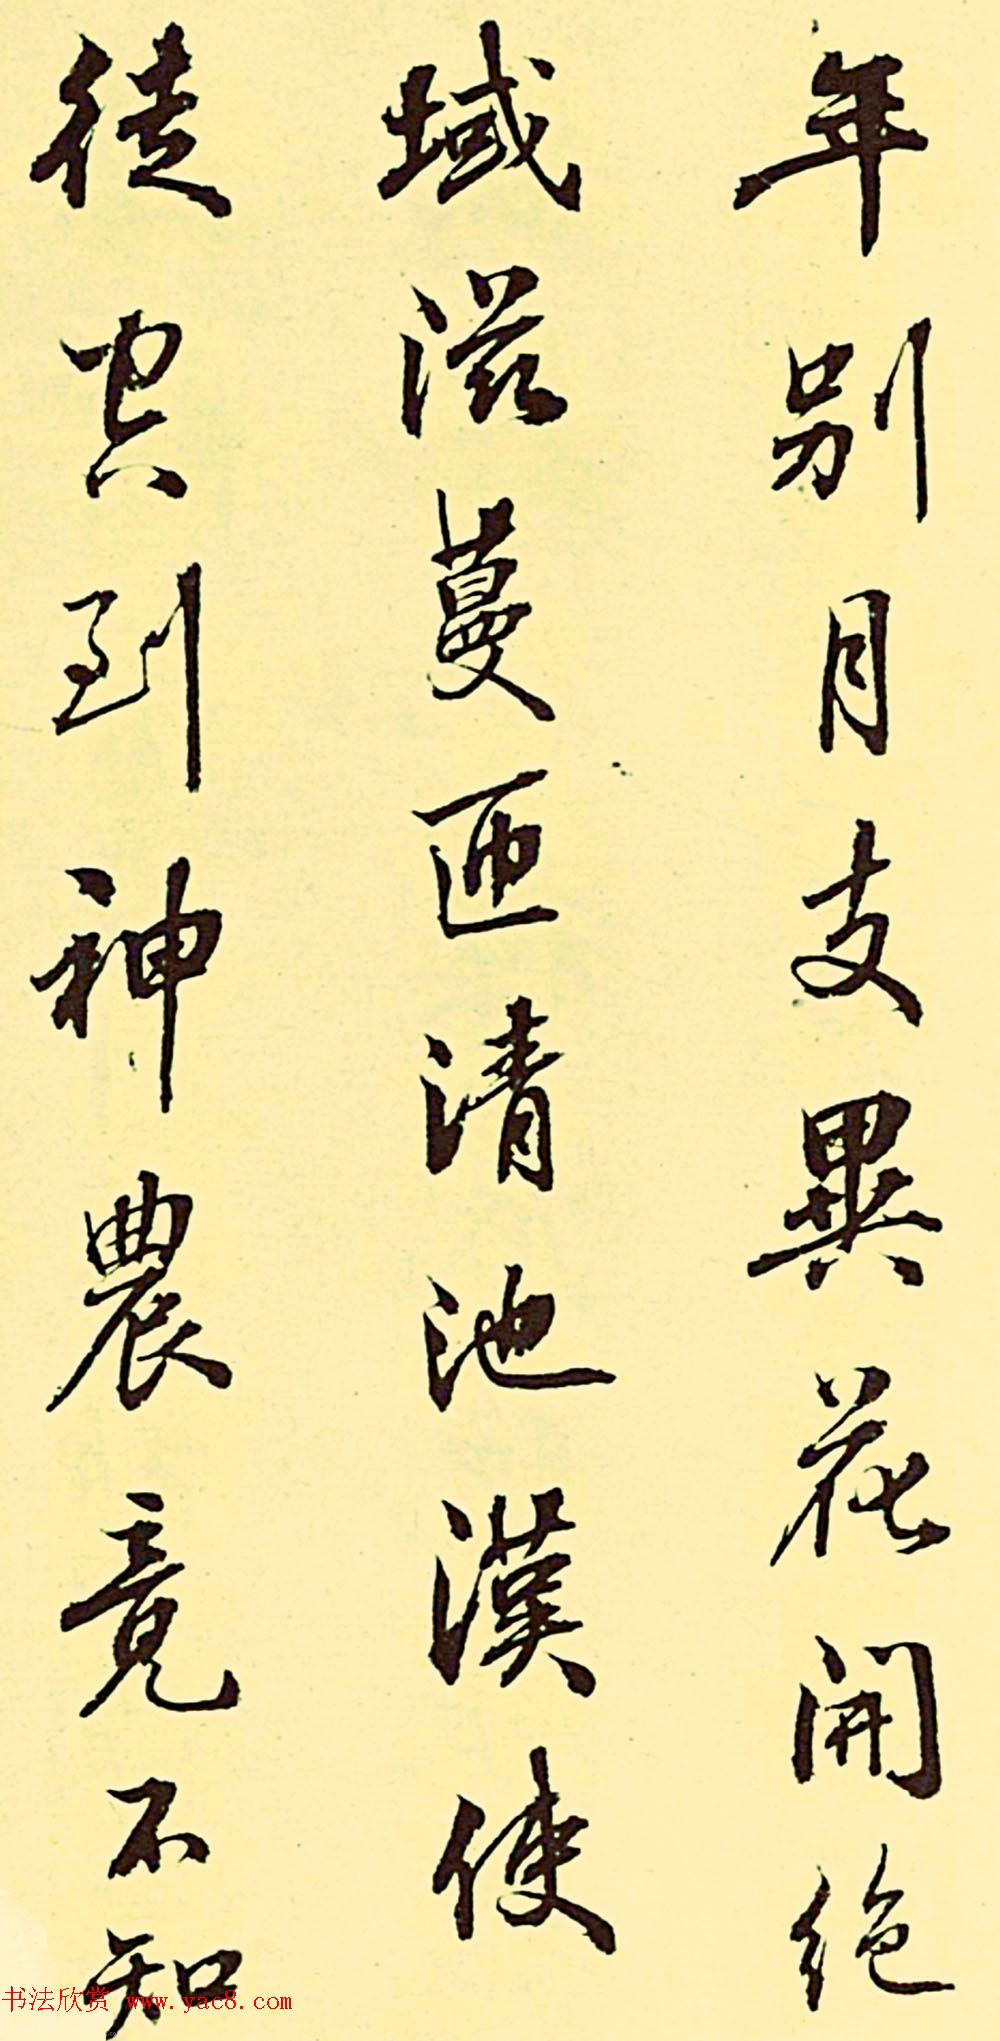 年别月支異花開絶
域滋蔓匝清池漢使
徒空到神農竟不知
书法欣赏 www.yac8.com